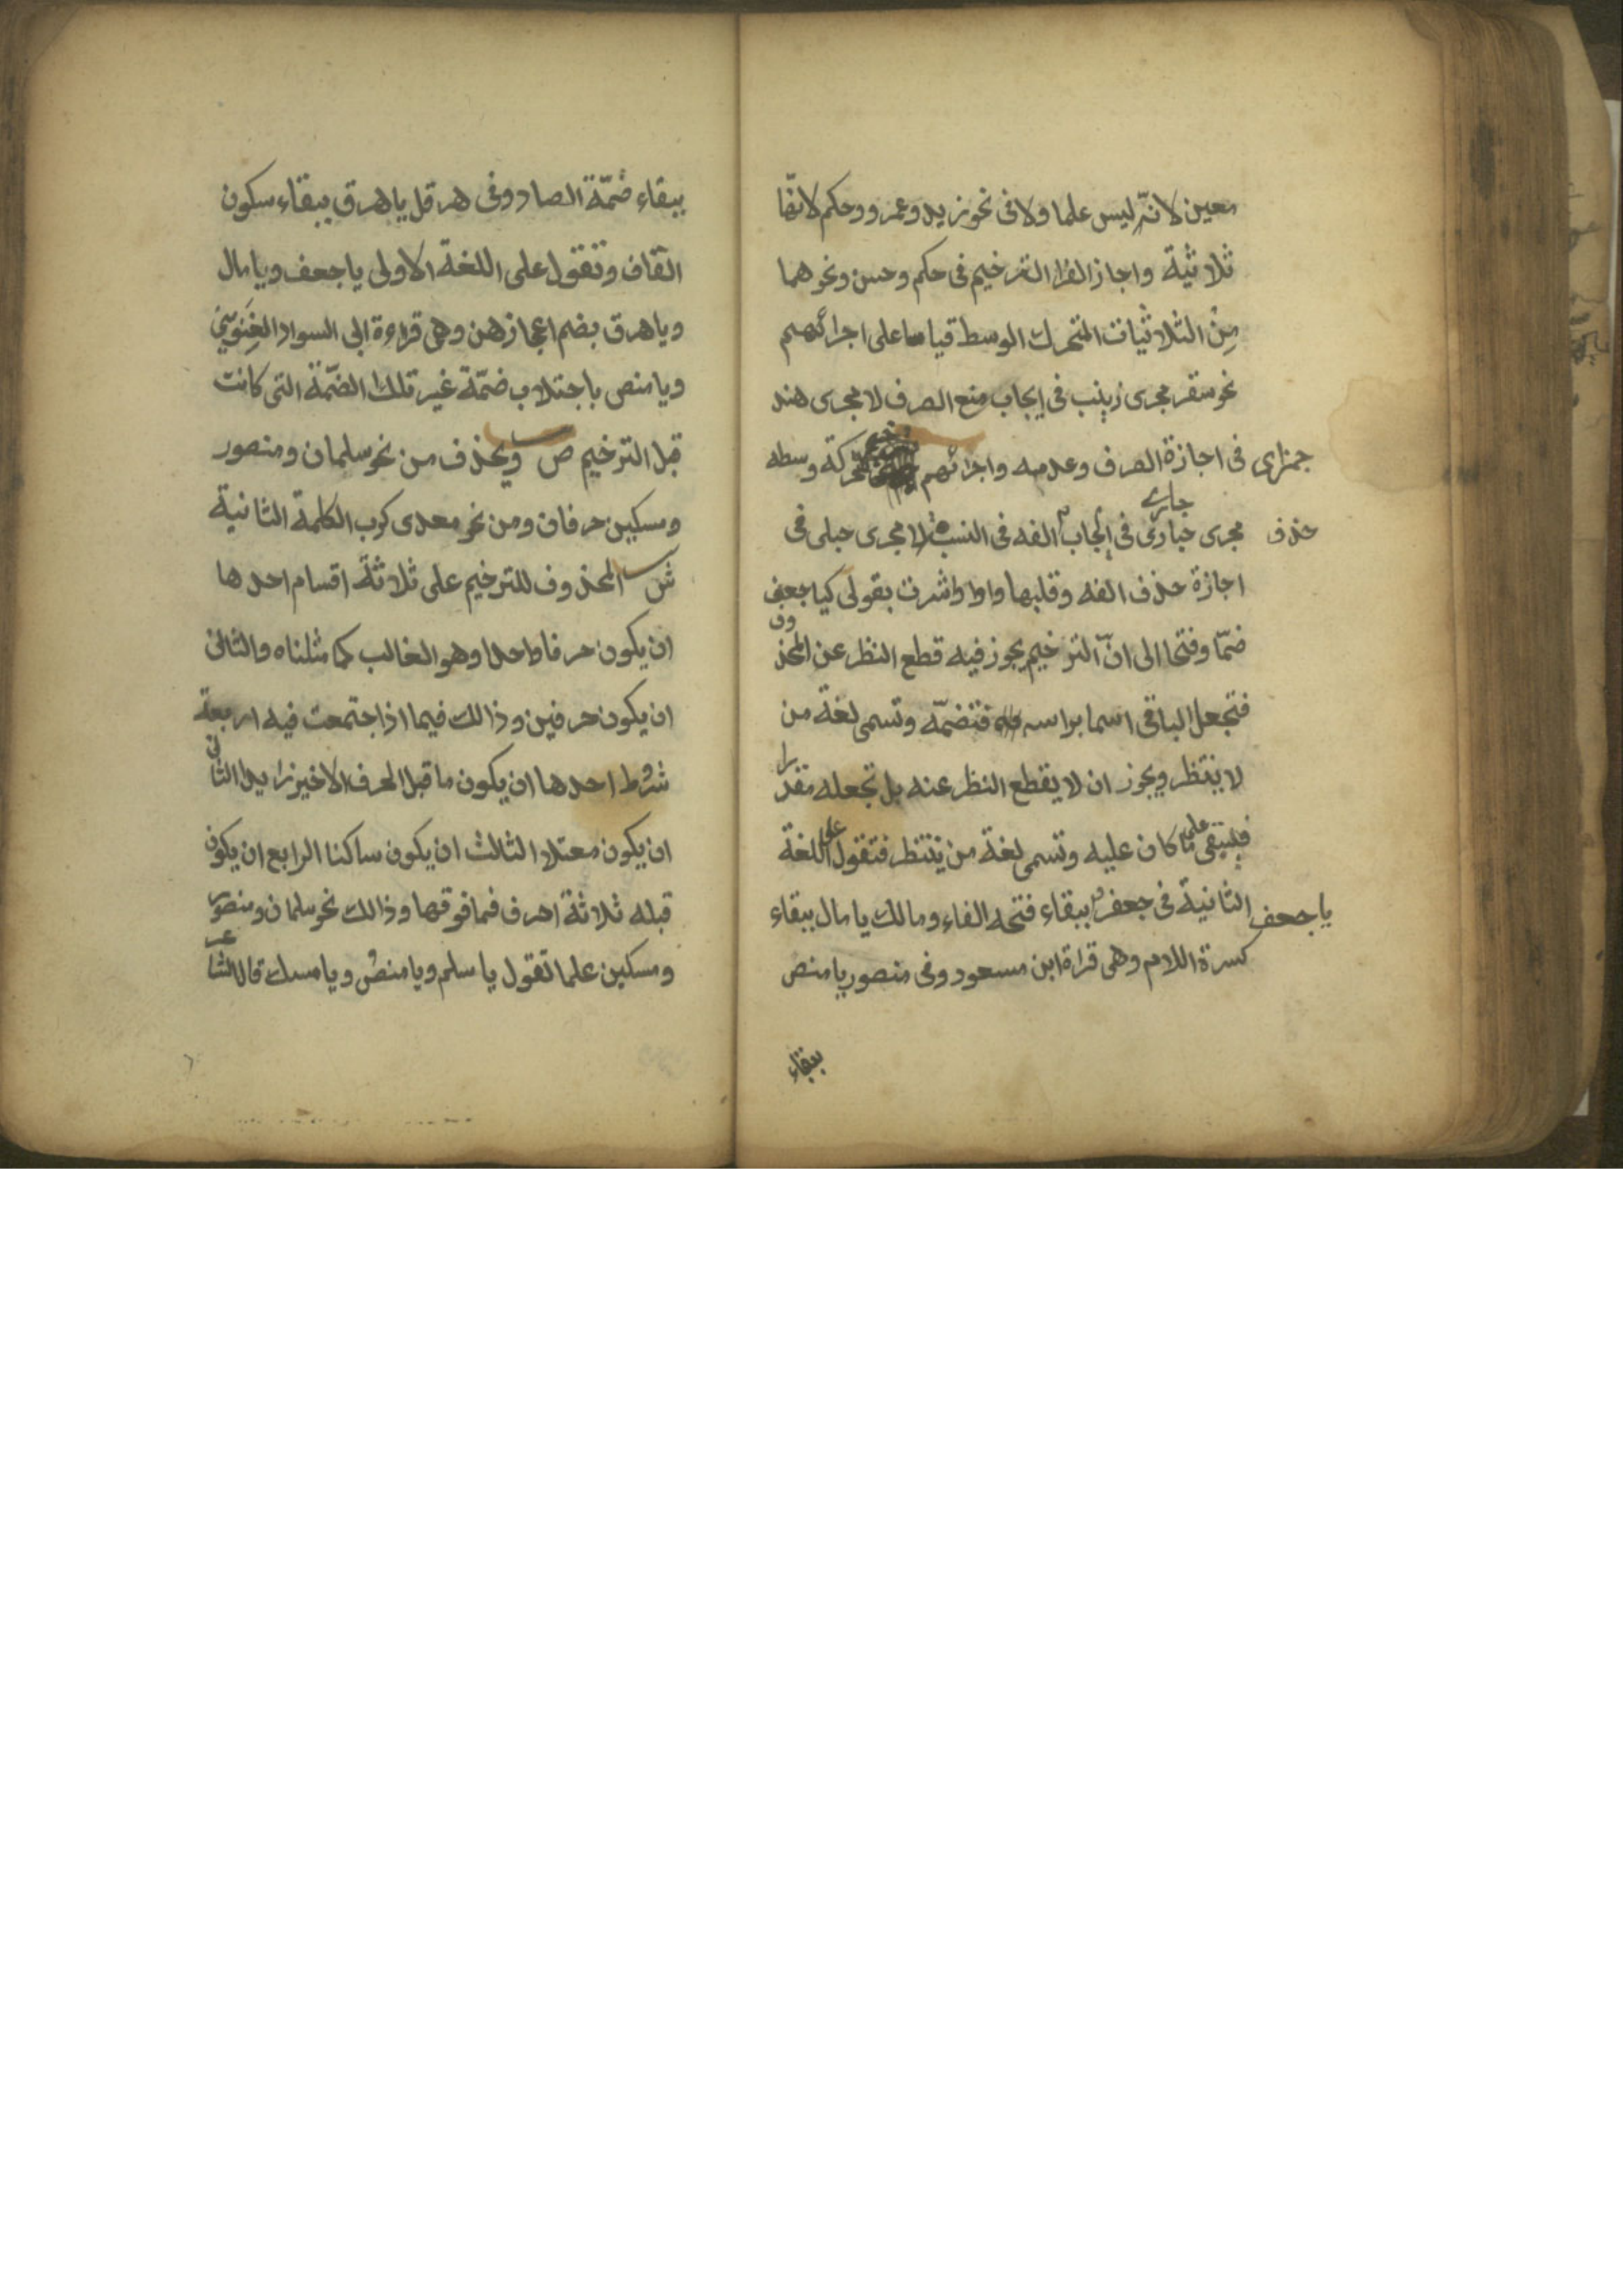 معين لانّه ليس علما ولا فى نحو زيد وعمرو وحكم لانّها
ثلاثية واجاز الفرا الترخيم فى حكم وحسن ونحوهما
مِن الثلاثيات المتحرك الوسط قياسا على اجرائهم
نحو سقر مجرى زينب فى ايجاب منع الصرف لا مجرى هند
فى اجازة الصرف وعدمه واجرائهم حركة وسطه
جمزاى
جارى
مجرى حبارى فى ايجاب الفه فى النسب لا مجرى حبلى فى
حذف
اجازة حذف الفه وقلبها واوا واشرت بقولى كيا جعف
ضمّا وفتحا الى انّ الترخيم يجوز فيه قطع النظر عن المحذوف
فتجعل الباقى اسما براسه فتضمّه وتسمى لغة من
لا ينتظر ويجوز ان لا يقطع النظر عنه بل تجعله مقدرا
فيبقى على ما كان عليه وتسمى لغة من ينتظر فتقول على اللغة
الثانية فى جعفر ببقاء فتحه الفاء ومالك يا مال ببقاء
يا جعف
كسرة اللام وهى قراة ابن مسعود وفى منصور يا منص
ببقاء
ببقاء ضمّة الصاد وفى هرقل يا هرق ببقاء سكون
القاف وتقول على اللغة الاولى يا جعف ويا مال
ويا هرق بضم اعجازهن وهى قراءة ابى السوار الغنوىّ
ويا منص باجتلاب ضمّة غير تلك الضمّة التى كانت
قبل الترخيم ص ويحذف من نحو سلمان ومنصور
ومسكين حرفان ومن نحو معدى كرب الكلمة الثانية
ش المحذوف للترخيم على ثلاثة اقسام احدها
ان يكون حرفا واحدا وهو الغالب كما مثلناه والثانى
ان يكون حرفين وذالك فيما اذا اجتمعت فيه اربعة
شروط احدها ان يكون ما قبل الحرف الاخير زايدا الثانى
ان يكون معتلا الثالث ان يكون ساكنا الرابع ان يكون
قبله ثلاثة احرف فما فوقها وذالك نحو سلمان ومنصور
ومسكين علما تقول يا سلم ويا منص ويا مسك قال الشاعر